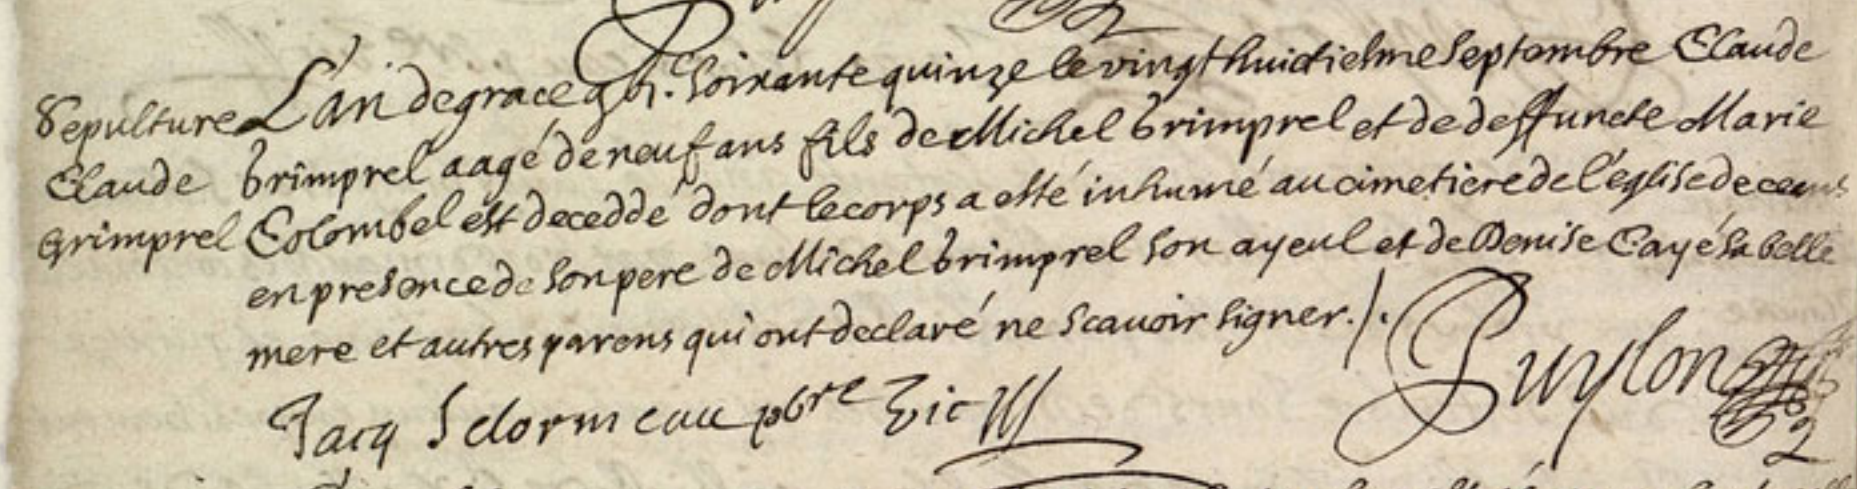 Sepulture
Claude
Grimprel
L'an de grace gbi.c soixante quinze le vingt huictiesme septembre Claude
Grimprel aagé de neuf ans fils de Michel Grimprel et de deffuncte Marie
Colombel est deceddé dont le corps a esté inhumé au cimetiere de l'église de ceans
en presence de son pere de Michel Grimprel son ayeul et de Denise Cayé sa belle
mere et autres parens qui ont declaré ne scavoir signer./.
Jacq Delormeau pbre Vic
Puylon